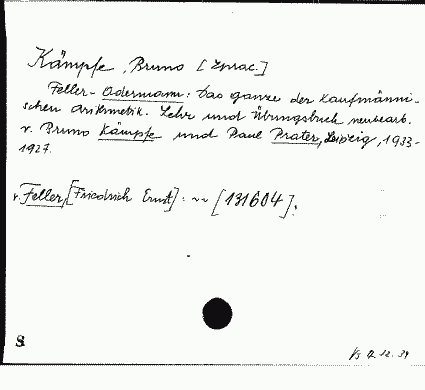 Kämpfe, Bruno [Zprac.]
Feller-Odermann: Das ganze der kaufmänni-
schen Arithmetik. Lehr und Übungsbuch neubearb.
v. Bruno Kämpfe und Paul Prater, Leipzig, 1933-
1927.
v. Feller, [Friedrich Ernst] : ~~ [131604].
S
12.12.39